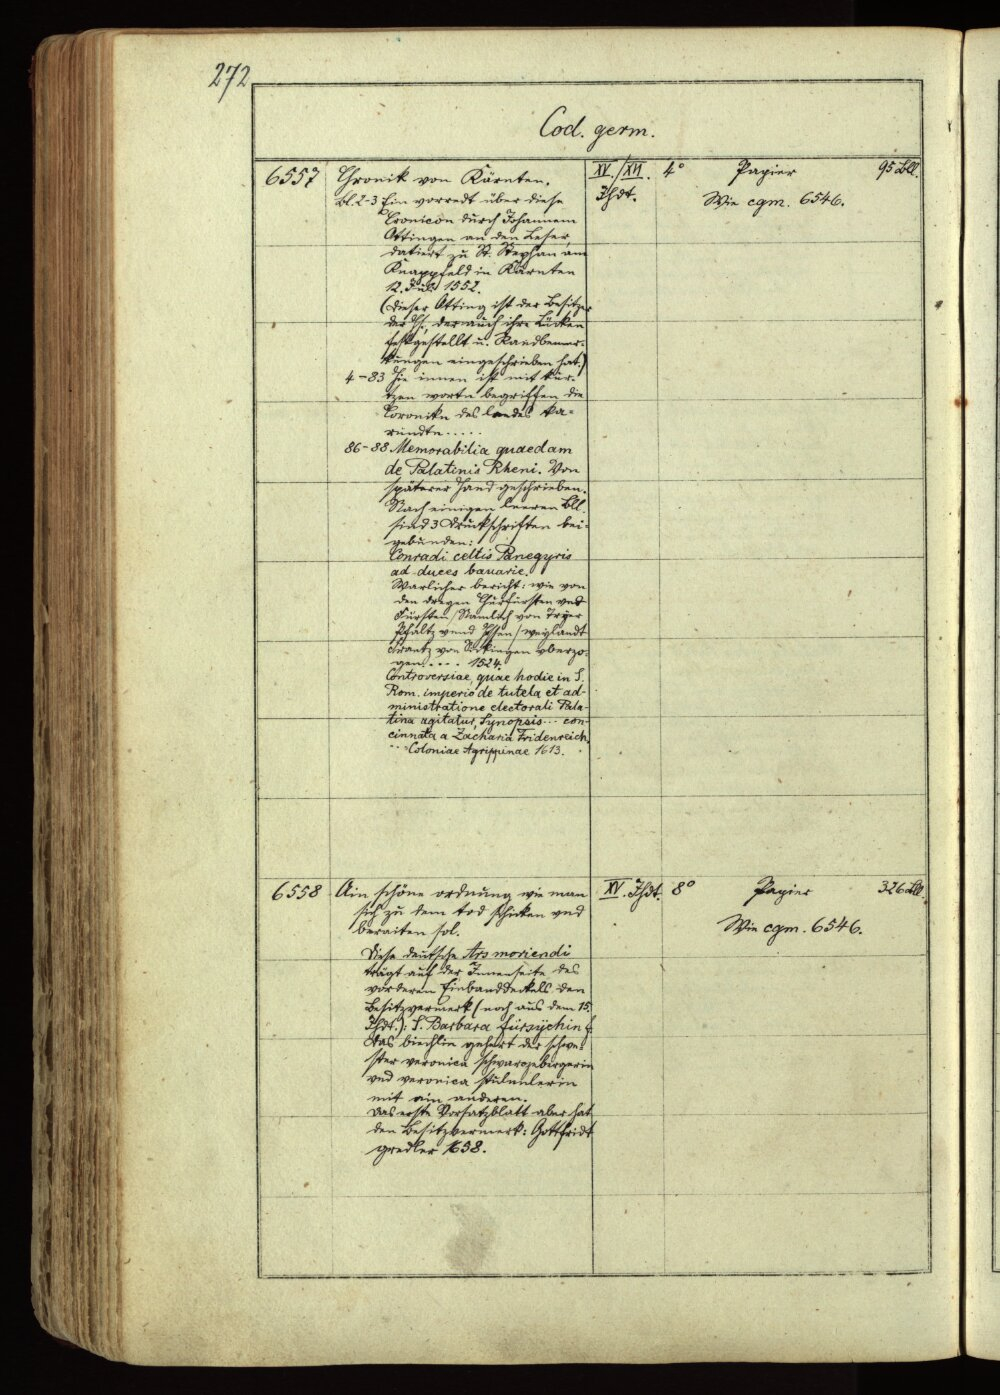 272
Cod. germ.
6557 Chronik von Kärnten. XV./XVI. Jhdt. 4° Papier 95 Bll.
Wie cgm. 6546.
Bl. 2-3 Ein vorredt über diese
Cronicon durch Johannem
Ottingen an den Leser,
datiert zu St. Stephan am
Knappfeld in Kärnten
12. Juli 1552.
(Dieser Otting ist der Besitzer
der Hs, der auch ihre Lücken
festgestellt u. Randbemer-
kungen eingeschrieben hat.)
4-83 Hie innen ist mit kur-
tzen wortn begriffen die
Coronikn des landes Ka=
rndtn.....
86-88 Memorabilia quaedam
de Palatinis Rheni. Von
späterer Hand geschrieben.
Nach einigen leeren Bll.
sind 3 Druckschriften bei-
gebunden:
Conradi celtis Panegyris
ad duces bauarie.
Warlicher bericht: wie von
den dreyen Churfürsten vnd
Fürsten / Nämlich von Tryer
Pfaltz vnnd Hssen / weylandt
Frantz von Sickingen vberzo-
gen.... 1524.
Controversiae, quae hodie in S.
Rom. imperio de tutela et ad-
ministratione electorali Pala-
tina agitatur, Synopsis... con-
cinnata a Zacharia Fridenreich
... Coloniae Agrippinae 1613.
6558 Ain schöne ordnung wie man XV. Jhdt. 8° Papier 326 Bll.
sich zu dem tod schicken vnd
beraiten sol.
Wie cgm. 6546.
Diese deutsche Ars moriendi
trägt auf der Innenseite des
vorderen Einbanddeckels den
Besitzvermerk (noch aus dem 15.
Jhdt.): S. Barbara fürsÿchin
Das biechlin gehört der schwe-
ster veronica schwarzebirgerin
vnd veronica stümlerin
mit ain anderen.
Das erste Vorsatzblatt aber hat
den Besitzvermerk: Gottfridt
gredler 1658.